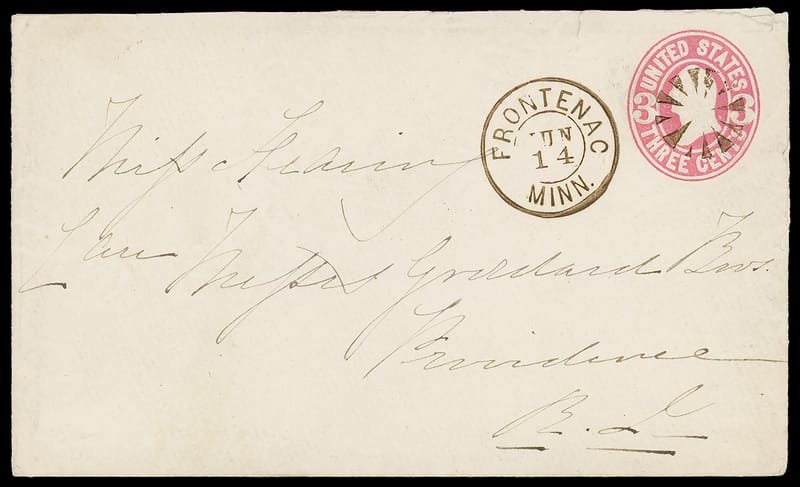 UNITED STATES
3 3
THREE CENTS
FRONTENAC
JUN
14
MINN.
Miss Hearing
Care Messrs Goddard Bros.
Providence
R. I.